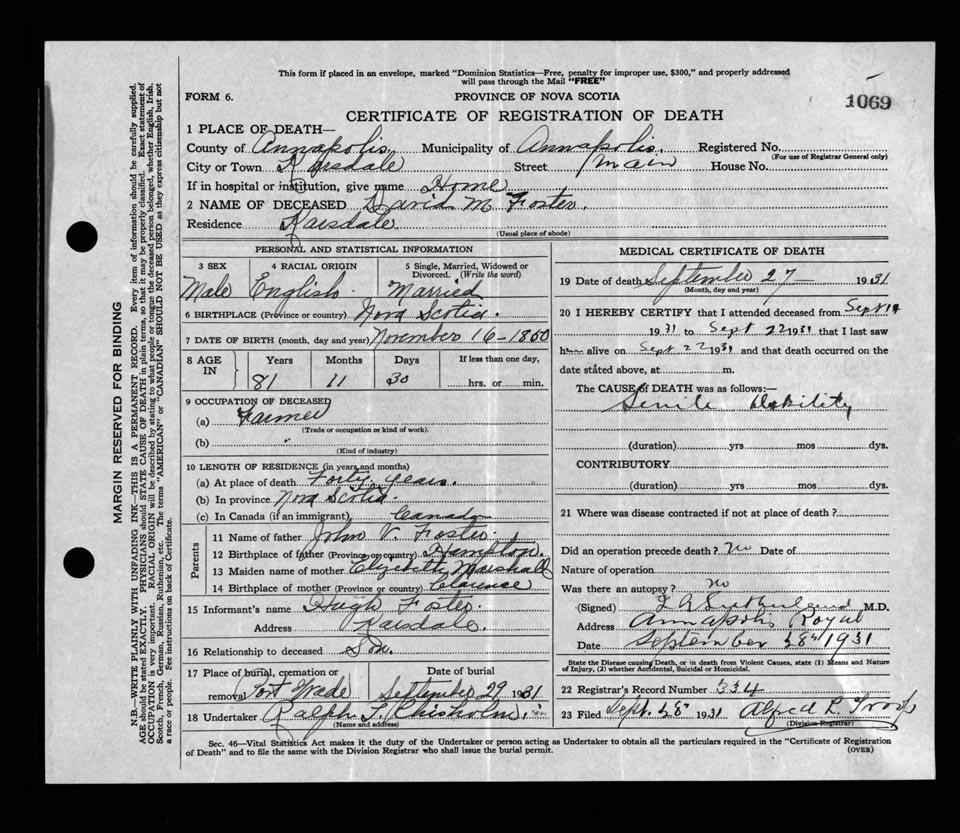 This form if placed in an envelope, marked "Dominion Statistics—Free, penalty for improper use, $300," and properly addressed
will pass through the Mail "FREE"
FORM 6.
PROVINCE OF NOVA SCOTIA
1069
CERTIFICATE OF REGISTRATION OF DEATH
1 PLACE OF DEATH—
County of Annapolis. Municipality of Annapolis. Registered No.
(For use of Registrar General only)
City or Town Karsdale Street Main House No.
If in hospital or institution, give name Home
2 NAME OF DECEASED David M Foster.
Residence Karsdale.
(Usual place of abode)
PERSONAL AND STATISTICAL INFORMATION
3 SEX 4 RACIAL ORIGIN 5 Single, Married, Widowed or Divorced. (Write the word)
Male English. Married
6 BIRTHPLACE (Province or country) Nova Scotia.
7 DATE OF BIRTH (month, day and year) November 16-1850
8 AGE IN Years Months Days If less than one day,
81 11 30 hrs. or min.
9 OCCUPATION OF DECEASED
(a) Farmer
(Trade or occupation or kind of work).
(b) "
(Kind of industry)
10 LENGTH OF RESIDENCE (in years and months)
(a) At place of death Forty years.
(b) In province Nova Scotia.
(c) In Canada (if an immigrant) Canada
Parents
11 Name of father John V. Foster.
12 Birthplace of father (Province or country) Hampton.
13 Maiden name of mother Elizabeth Marshall
14 Birthplace of mother (Province or country) Clarence
15 Informant's name Hugh Foster.
Address Karsdale.
16 Relationship to deceased Son.
17 Place of burial, cremation or removal Port Wade
Date of burial
September 29 1931
18 Undertaker Ralph L. Chisholm.
(Name and address)
MEDICAL CERTIFICATE OF DEATH
19 Date of death September 27 1931
(Month, day and year)
20 I HEREBY CERTIFY that I attended deceased from Sept 14
1931 to Sept 22 1931 that I last saw
h alive on Sept 22 1931 and that death occurred on the
date stated above, at m.
The CAUSE of DEATH was as follows:—
Senile Debility
(duration) yrs mos dys.
CONTRIBUTORY
(duration) yrs mos dys.
21 Where was disease contracted if not at place of death?
Did an operation precede death? No Date of
Nature of operation
Was there an autopsy? no
(Signed) M.D.
Address Annapolis Royal
Date September 28th 1931
State the Disease causing Death, or in death from Violent Causes, state (1) Means and Nature
of Injury, (2) whether Accidental, Suicidal or Homicidal.
22 Registrar's Record Number 334
23 Filed Sept. 28th 1931 Alfred R.
(Division Registrar)
Sec. 46—Vital Statistics Act makes it the duty of the Undertaker or person acting as Undertaker to obtain all the particulars required in the "Certificate of Registration
of Death" and to file the same with the Division Registrar who shall issue the burial permit.
(OVER)
MARGIN RESERVED FOR BINDING
N.B.—WRITE PLAINLY WITH UNFADING INK—THIS IS A PERMANENT RECORD. Every item of information should be carefully supplied.
AGE should be stated EXACTLY. PHYSICIANS should STATE CAUSE OF DEATH in plain terms, so that it may be properly classified. Exact statement of
OCCUPATION is very important. RACIAL ORIGIN will be described by stating to what people or tongue the deceased person belonged, whether English, Irish,
Scotch, French, German, Russian, Ruthenian, etc. The terms "AMERICAN" or "CANADIAN" SHOULD NOT BE USED as they express citizenship but not
a race or people. See instructions on back of Certificate.